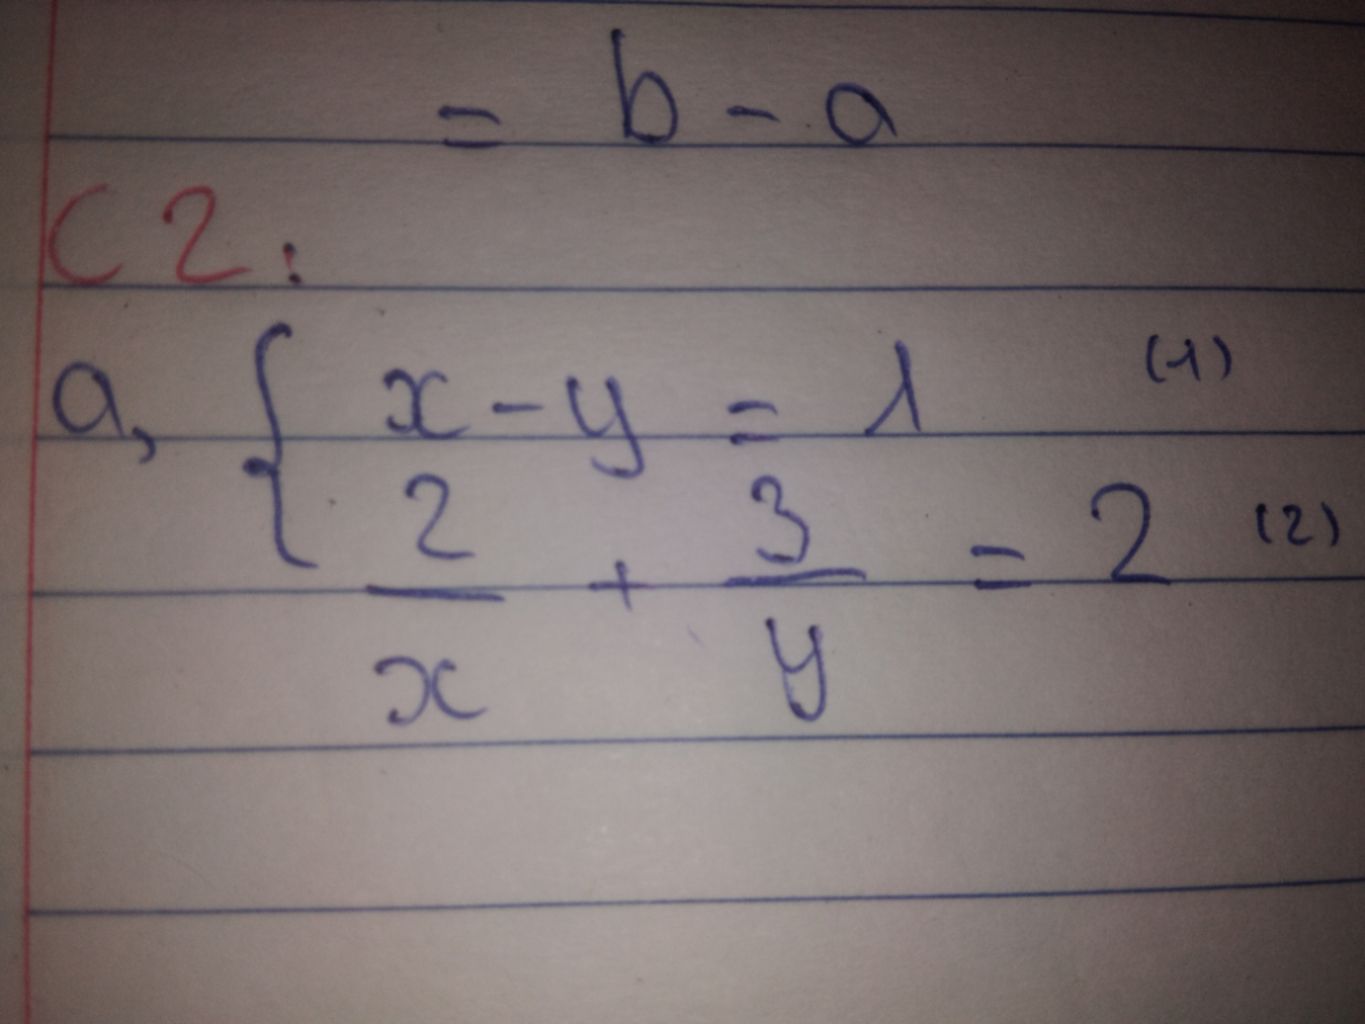 = b - a
C2:
a, { x - y = 1 (1)
2/x + 3/y = 2 (2)